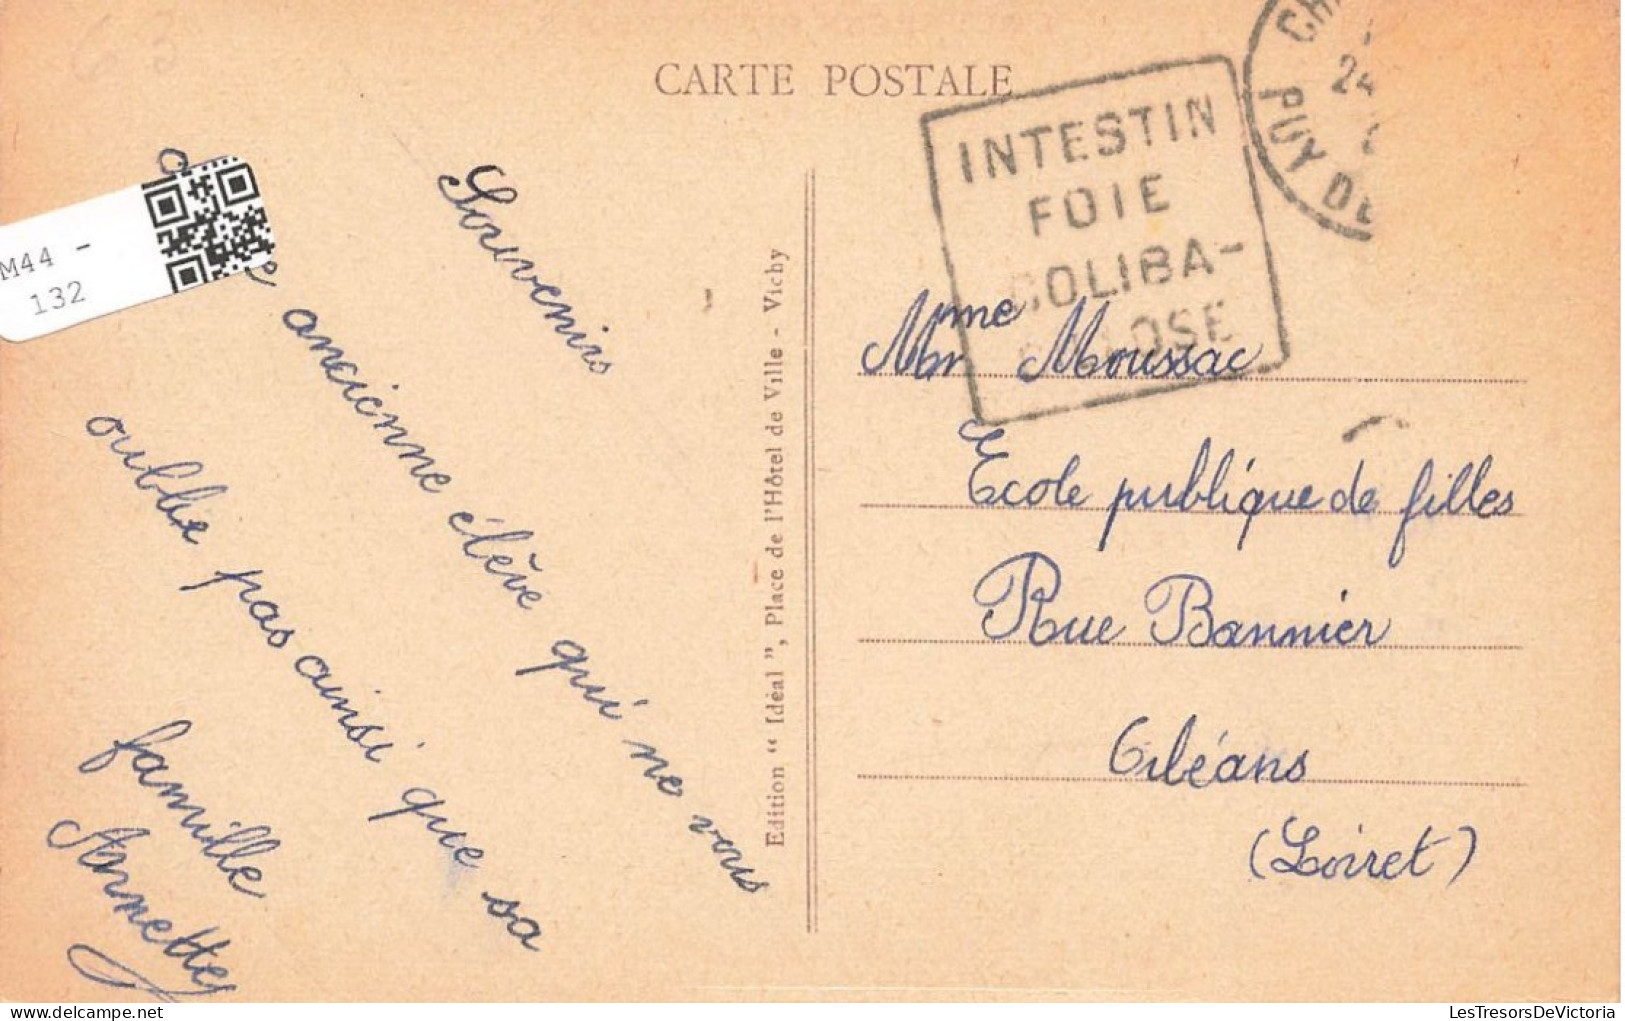 CARTE POSTALE
INTESTIN
FOIE
COLIBA-
LOSE
PUY DE
24
M44 -
132
Souvenirs
ancienne élève qui ne vous
oublie pas ainsi que sa
famille
Annette
Edition “ Idéal ”, Place de l'Hôtel de Ville - Vichy
Mme
Mr Moussac
Ecole publique de filles
Rue Bannier
Orléans
(Loiret)
LesTresorsDeVictoria